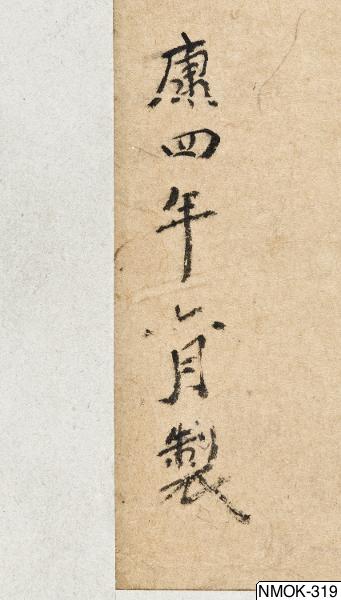 康四年六月製
NMOK-319